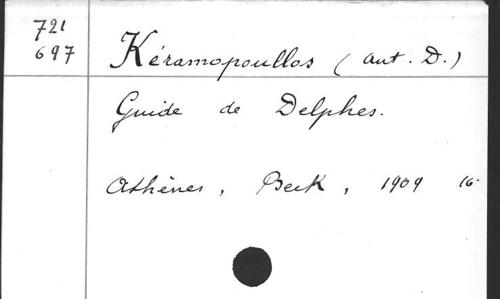 721
697
Kéramopoullos (Ant. D.)
Guide de Delphes.
Athènes, Beck, 1909 16·